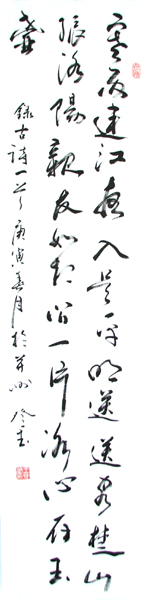 寒雨連江夜入吴平明送客楚山
孤洛陽親友如相問一片冰心在玉
壺
錄古詩一首庚寅春月於并州